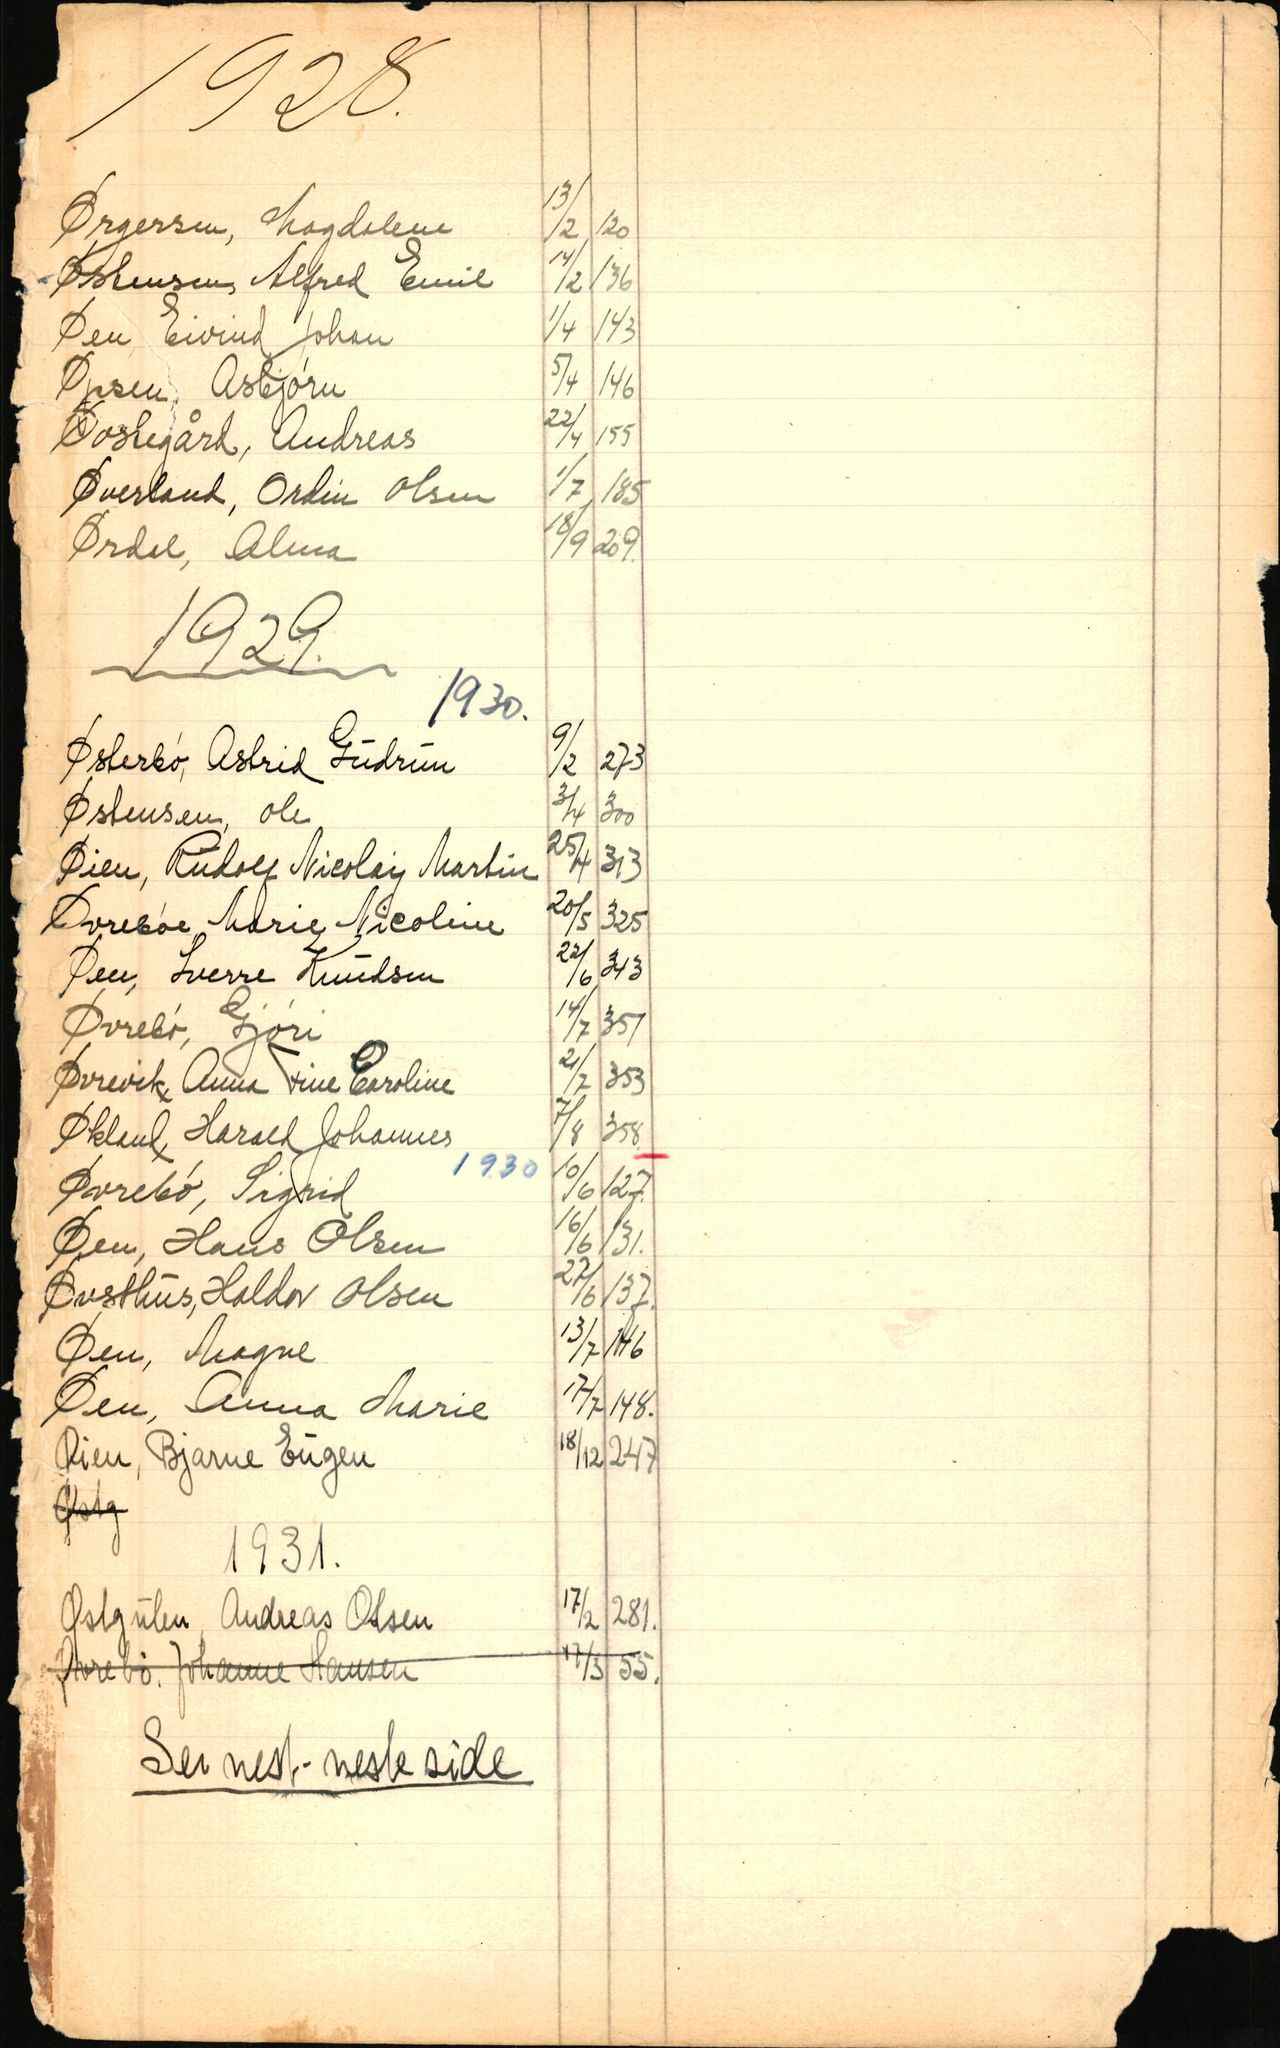 1928.
Ørgersen, Magdalene 13/2 120
Østensen, Alfred Emil 14/2 136
Øen, Eivind Johan 1/4 143
Øpsen, Asbjörn 5/4 146
Andreas 22/4 155
Øverland, Ordin Olsen 1/7 185
Ørdal, Alma 18/9 209.
1929.
1930.
Østerbö, Astrid Gudrun 9/2 273
Østensen, Ole 3/4 300
Øien, Rudolf Nicolay Martin 25/4 313
Øvreböe, Marie Nicoline 20/5 325
Øen, Sverre Knudsen 22/6 343
Øvrebö, Gjöri 14/7 351
Øvrevik, Anna Caroline 21/7 353
Økland, Harald Johannes 7/8 358.
1930
Øvrebö, Sigrid 10/6 127.
Øen, Hans Olsen 16/6 131.
Øvsthus, Haldor Olsen 27/6 137.
Øen, Magne 13/7 146
Øen, Anna Marie 17/7 148.
Øien, Bjarne Eugen 18/12 247
Østg
1931.
Østgulen, Andreas Olsen 17/2 281.
Øvrebö. Johanne Hansen 17/3 55.
Se nest-neste side